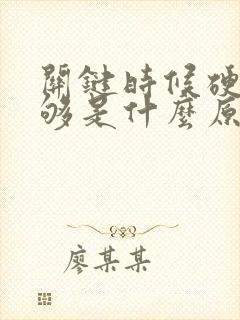 關鍵時候硬
够是什麼原
廖某某